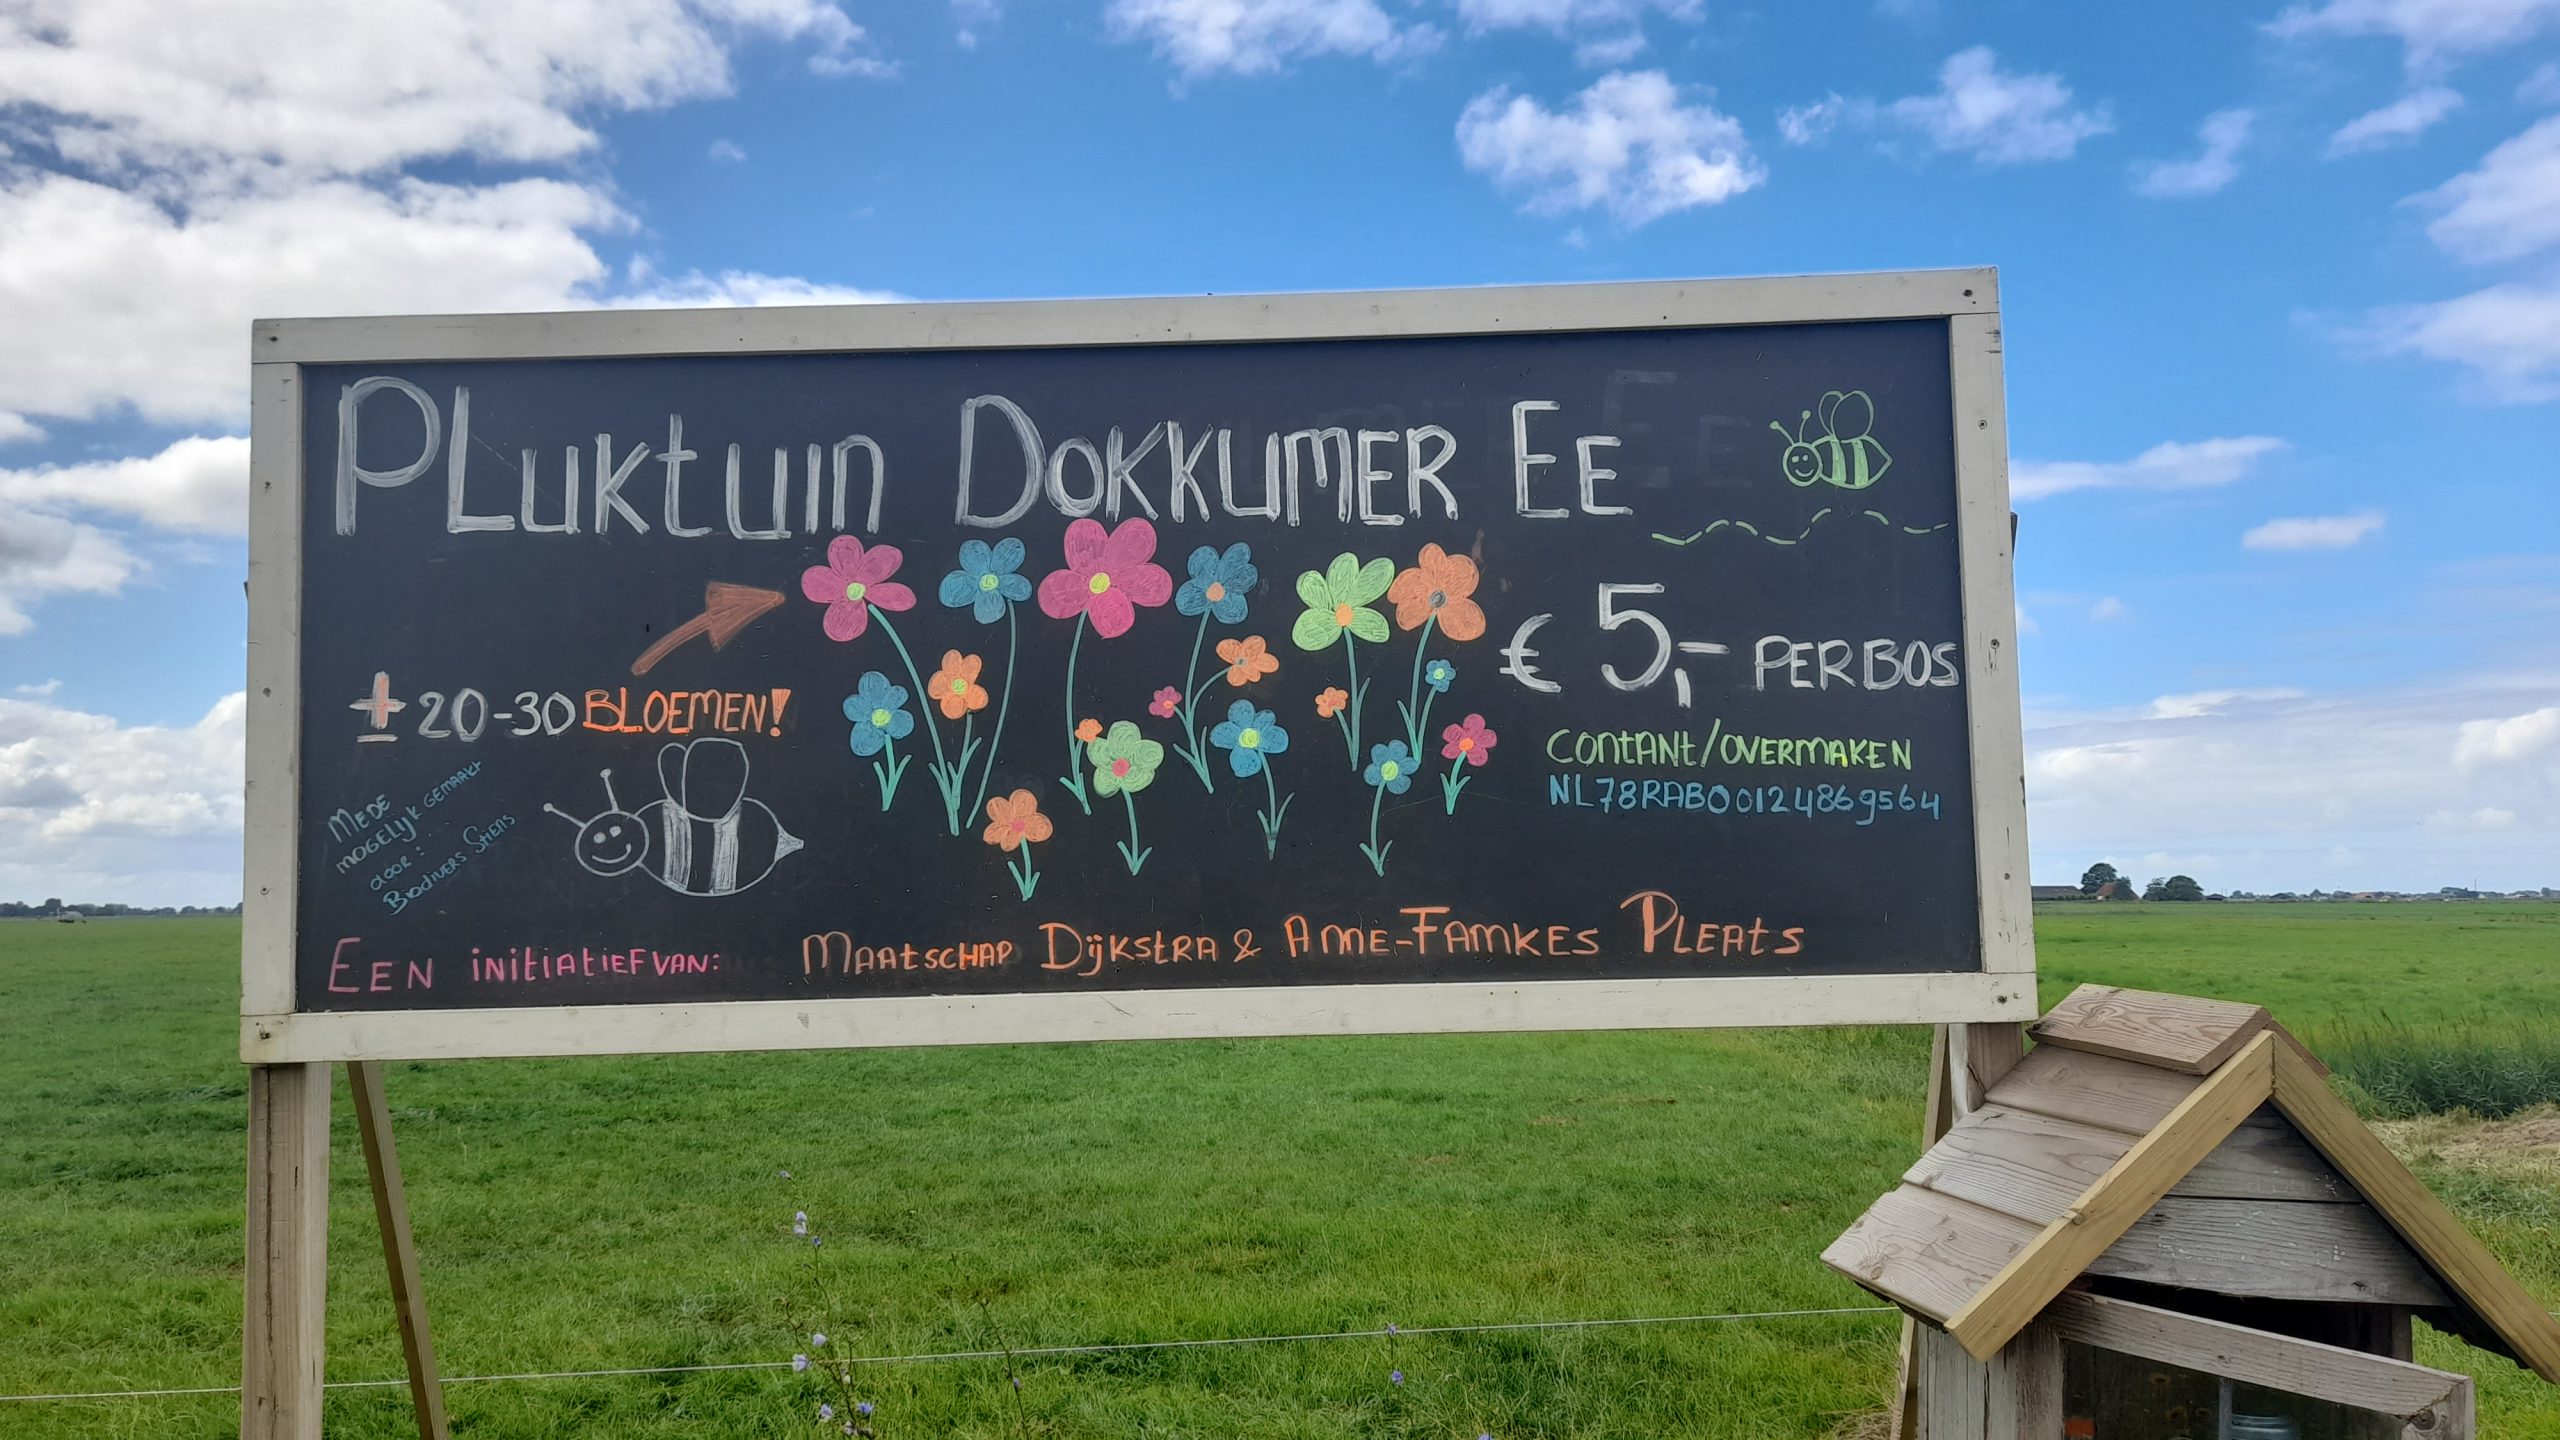 PLuktuin Dokkumer Ee
€ 5,- PER BOS
± 20-30 BLOEMEN!
Contant/overmaken
NL78RABO0124869564
Mede
mogelijk gemaakt
door:
Biodivers Stiens
Een initiatief van: Maatschap Dijkstra & Anne-Famkes Pleats